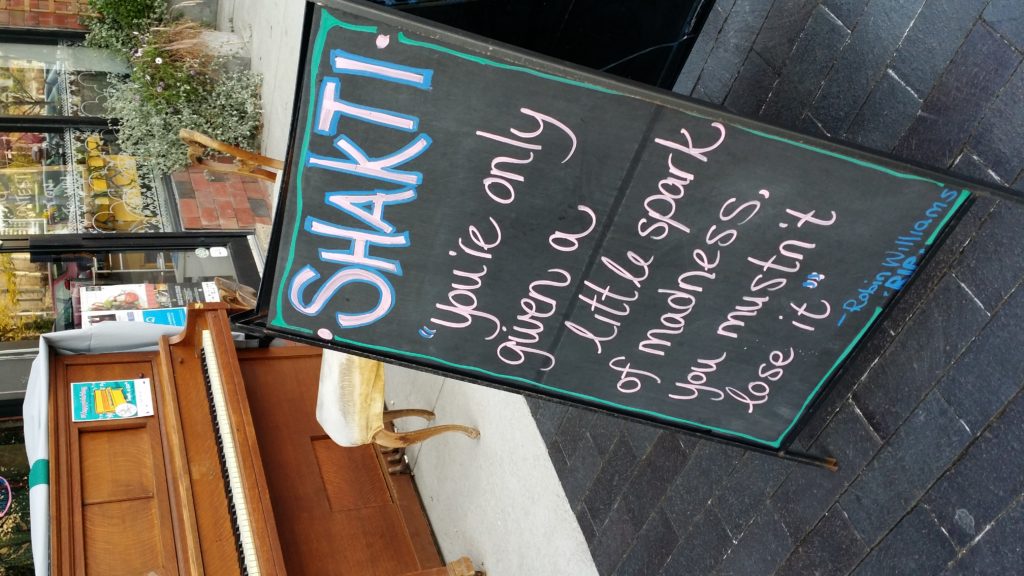 SHAKTI
"You're only
given a
little spark
of madness,
you mustn't
lose it"
- Robin Williams
RIP